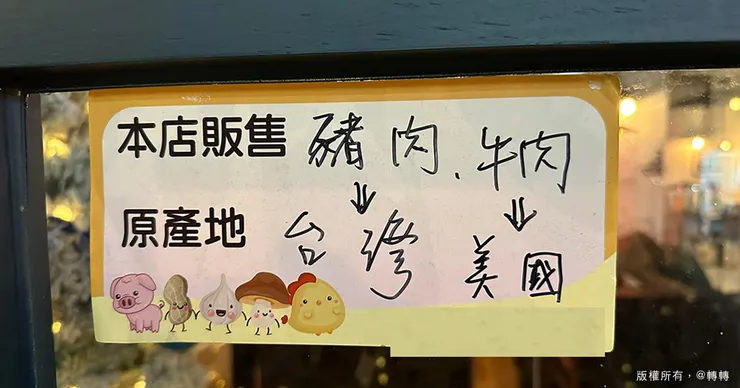 本店販售 豬肉、牛肉
⇓ ⇓
原產地 台灣 美國
版權所有，@轉轉